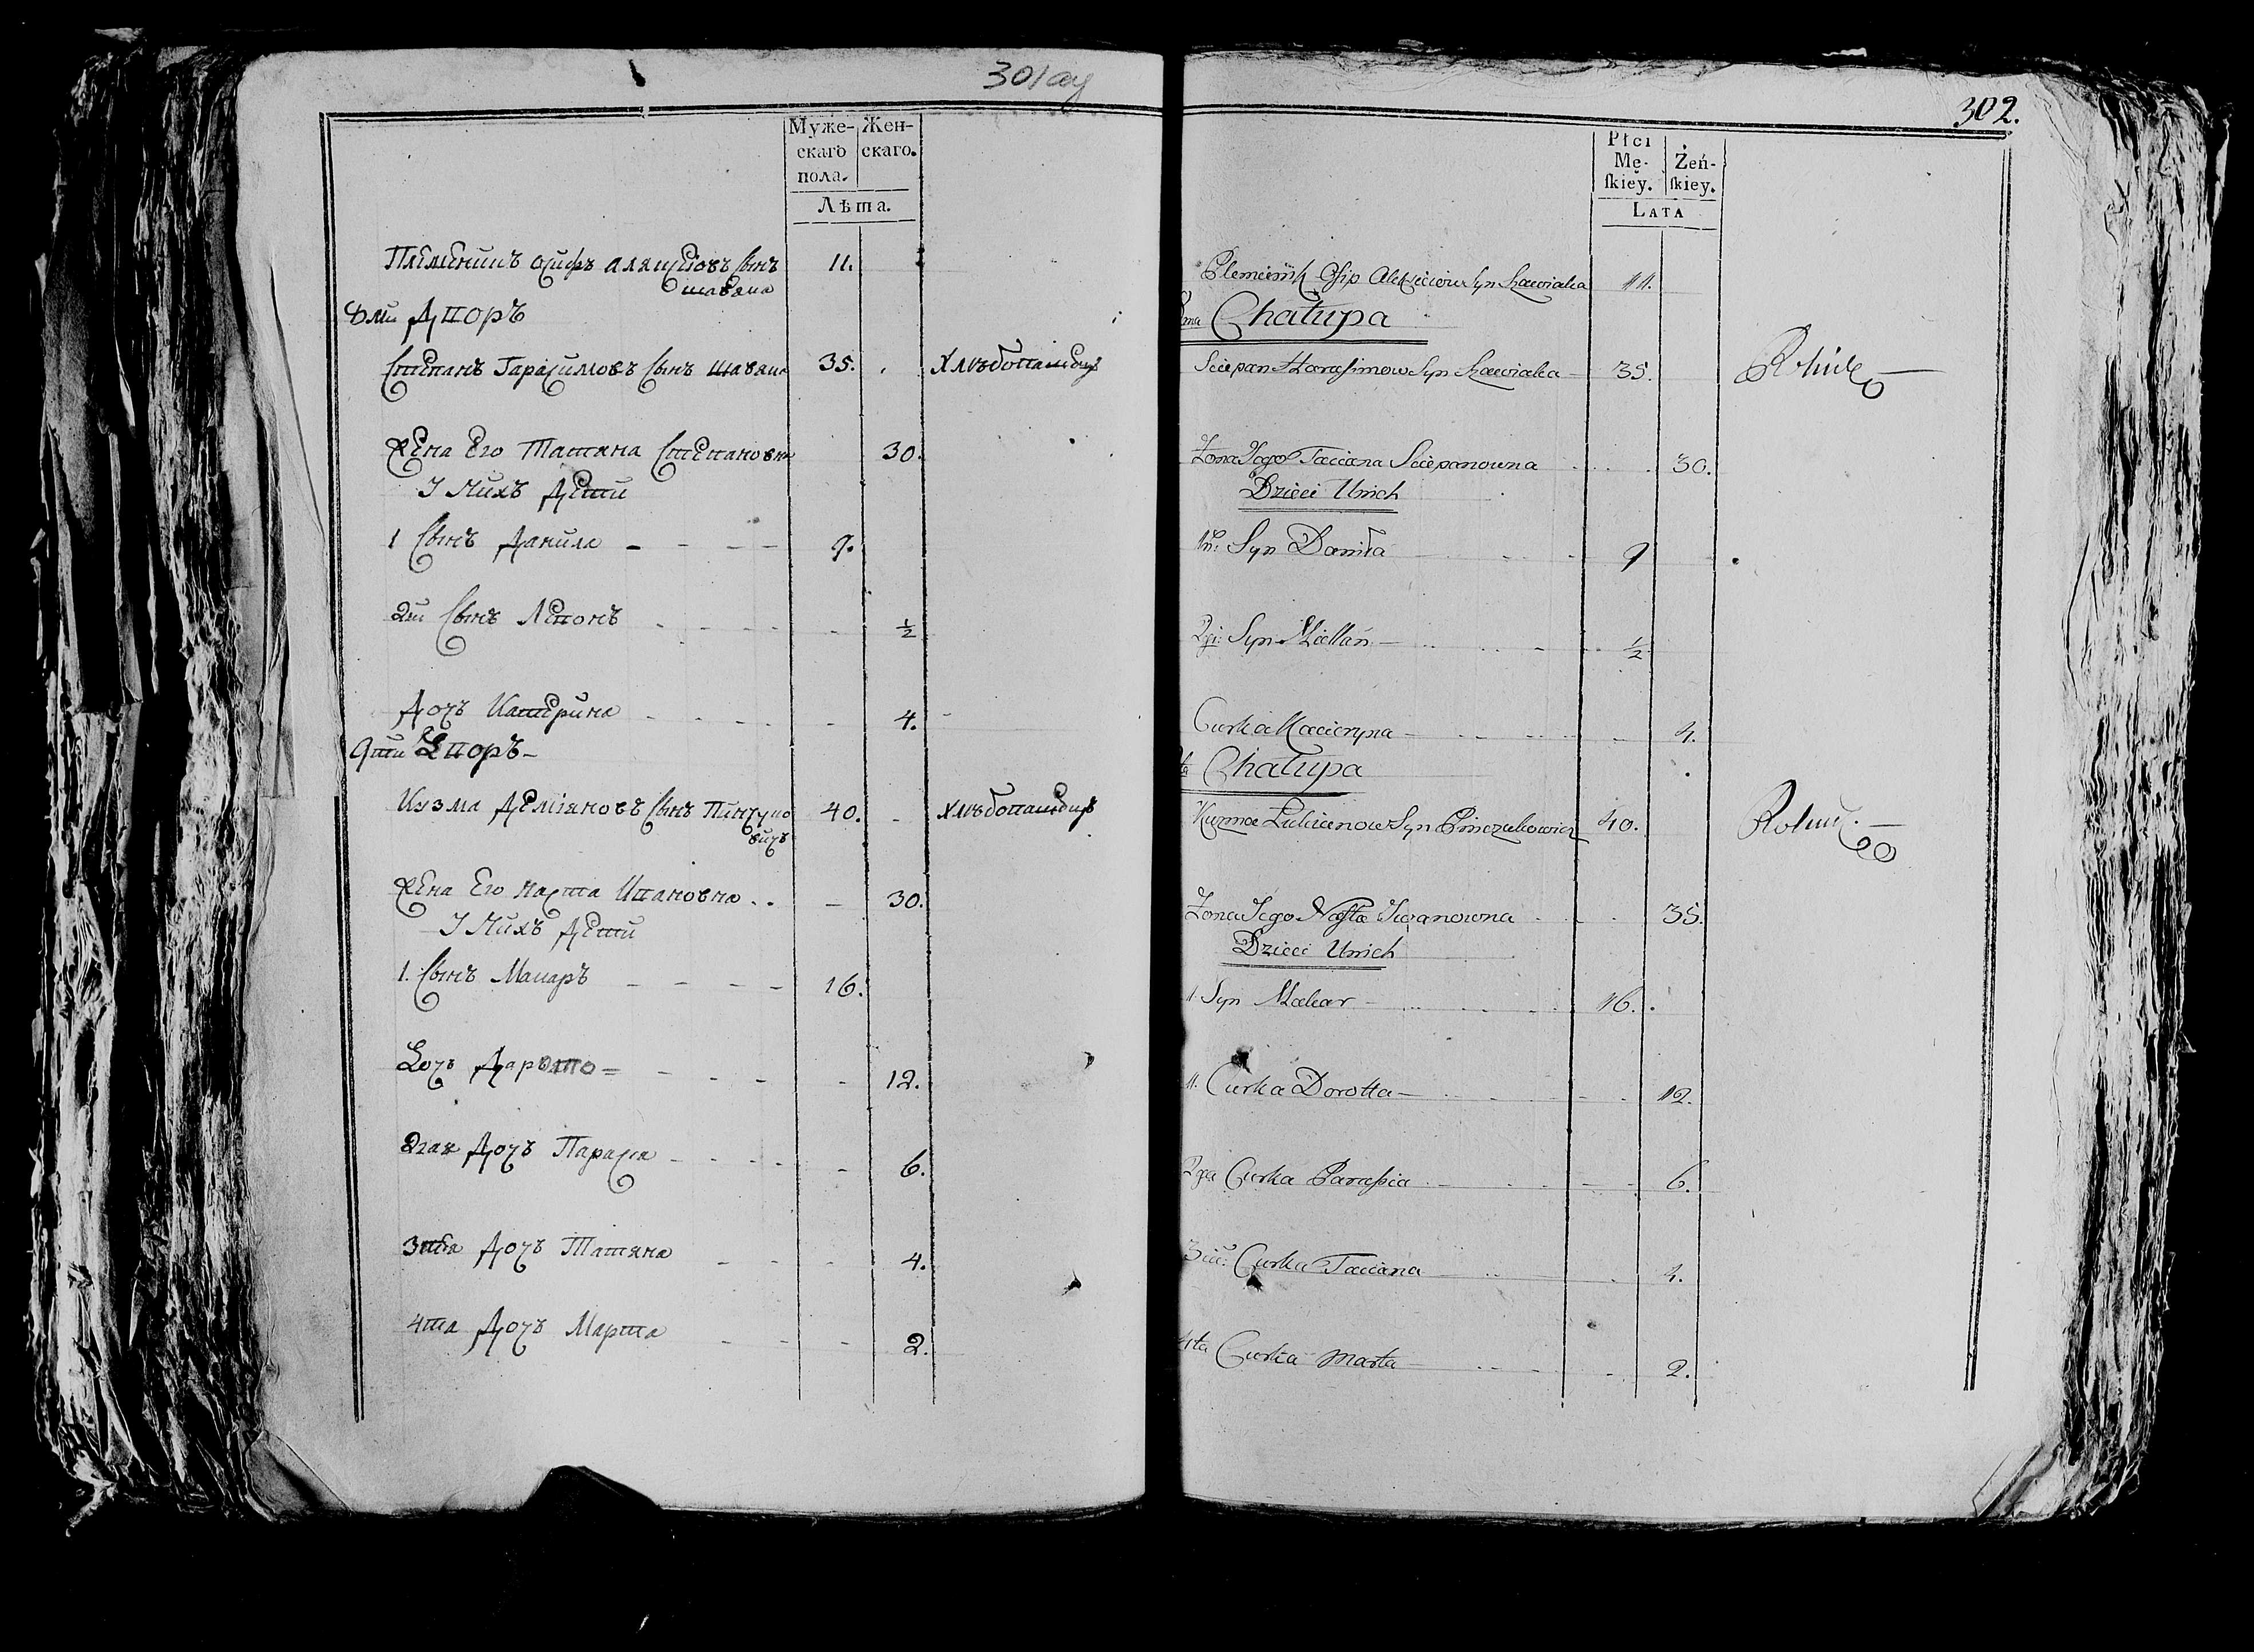 301 ау
Муже- Жен-
скаго скаго.
пола.
Лѣта.
Племенникъ Осифъ Аляксѣовъ сынъ 11.
шавяка
8мы Дворъ
Степанъ Гарасимовъ сынъ Шавяка 35. Хлѣбопашецъ
Жена Его Татяна Степановна 30.
У Нихъ Дети
1 Сынъ Данила 9.
2й Сынъ 1/2
Дочъ Катерина 4.
9ты Дворъ
Кузма Деміяновъ Сынъ Пинчуко 40. Хлѣбопашецъ
вичъ
Жена Его Наста Ивановна 30.
У Нихъ Дети
1. Сынъ Макаръ 16.
Дочъ Дарота 12.
2гая Дочъ Парасія 6.
3тя Дочъ Татяна 4.
4та Дочъ Марта 2.
302.
Płci
Mę- Żeń-
ſkiey. ſkiey.
LATA
Plemiennik Osip Alexieiow Syn Szawiaka 11.
8ma Chałupa
Sciepan Harasimow Syn Szawiaka 35. Rolnik
Zona Jego Taciana Sciepanowna 30.
Dzieci Unich
1n: Syn Daniła 9
2gi: Syn 1/2
Curka Kacieryna 4.
ta Chałupa
Kuzma Syn Pinczukowicz 40. Rolnik.
Zona Jego Nasta Iwanowna 35.
Dzieci Unich
1. Syn Makar 16.
1. Curka Dorotta 12.
2ga Curka Parasia 6.
3cia: Curka Taciana 4.
4ta Curka Marta 2.